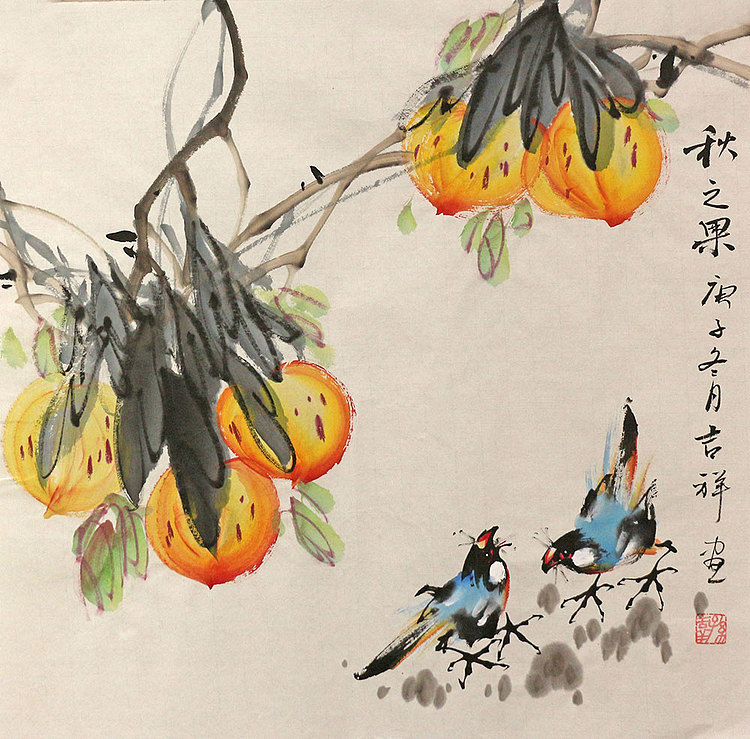 秋之果 庚子冬月吉祥画